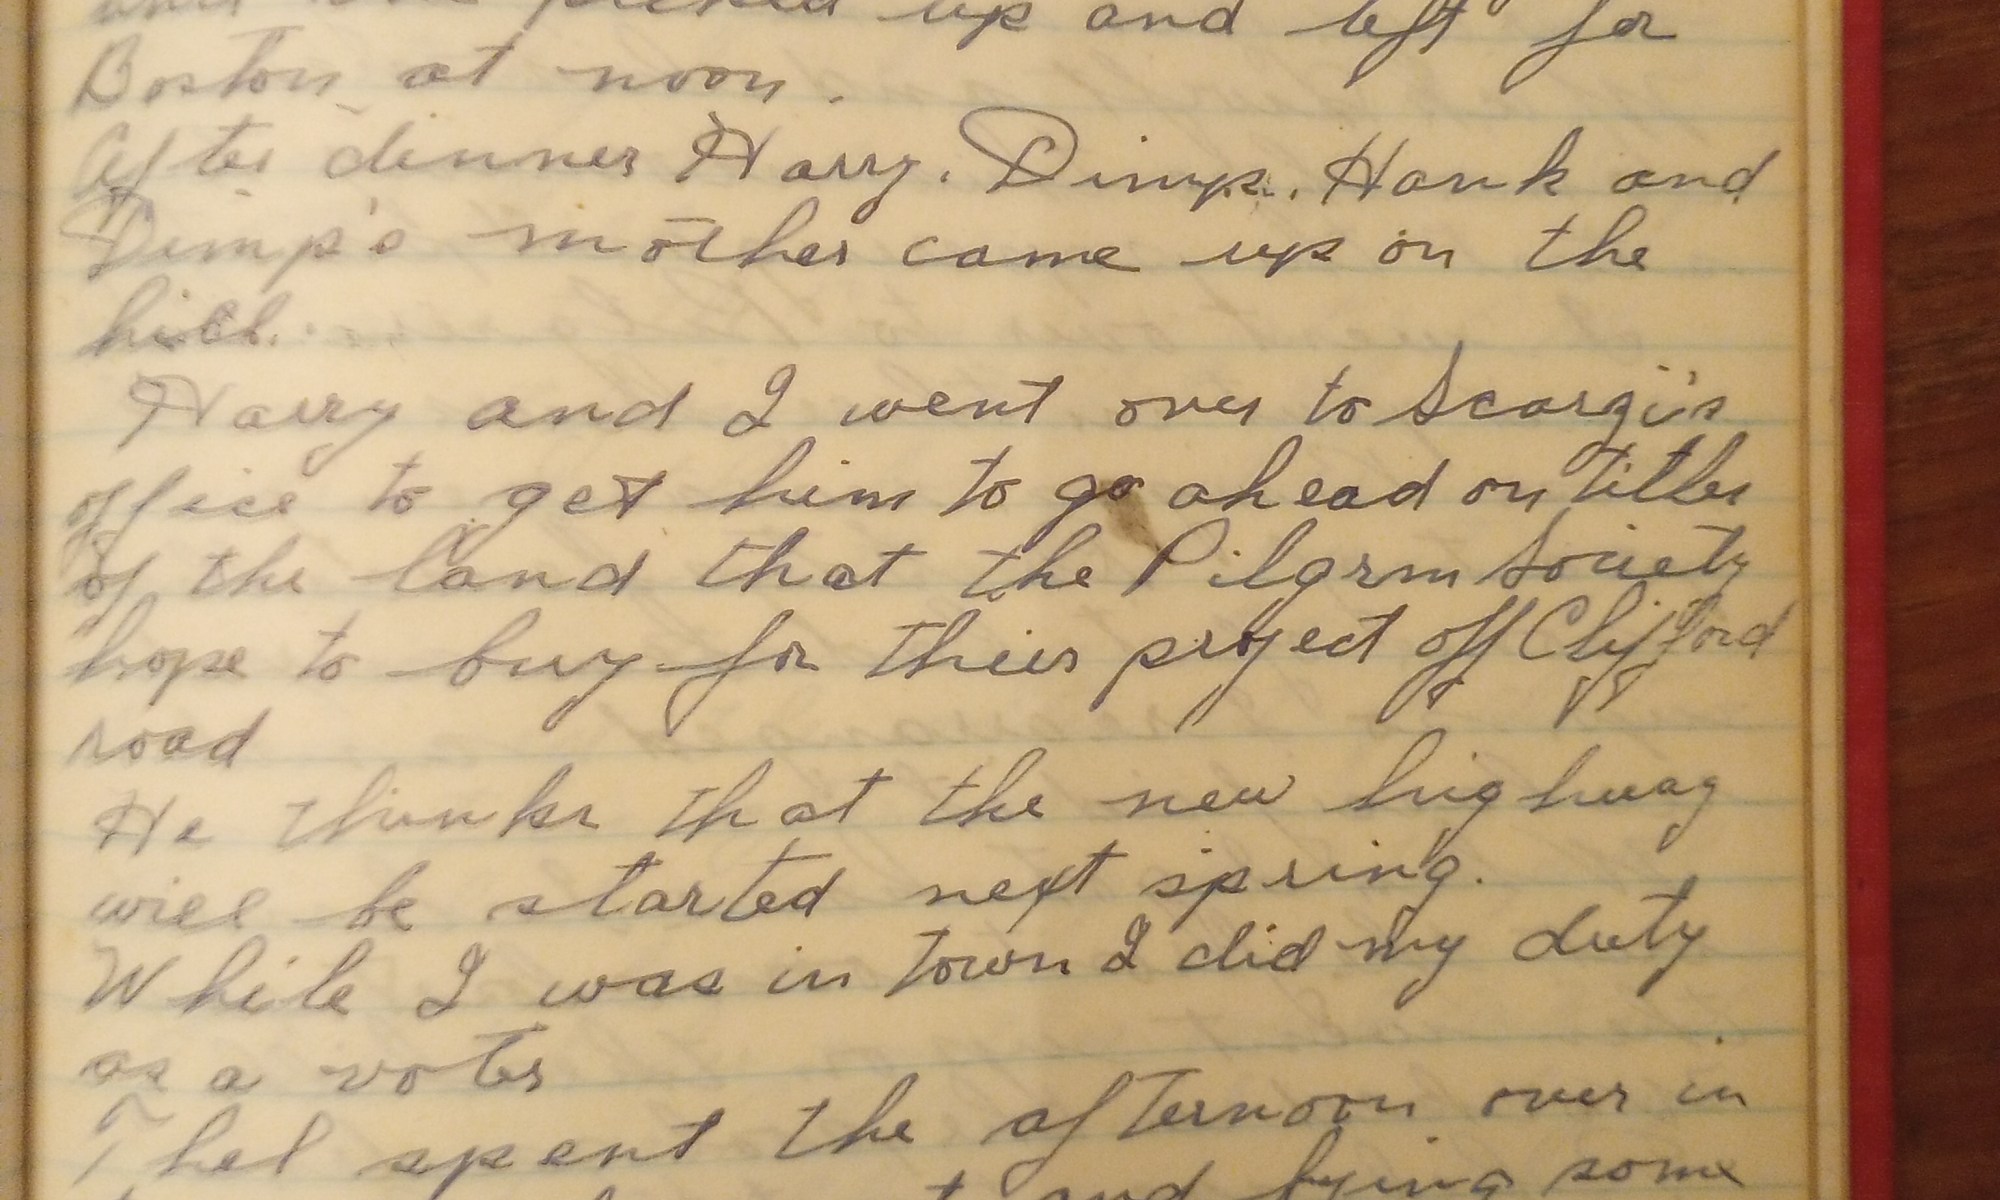 picked up and left for
Boston at noon.
After dinner Harry, Dimp, Hank and
Dimp's mother came up on the
hill.
Harry and I went over to Scargi's
office to get him to go ahead on titles
of the land that the Pilgrm Society
hope to buy for thier project off Clifford
road
He thinks that the new highway
will be started next spring.
While I was in town I did my duty
as a voter
Thel spent the afternoon over in
and tying some